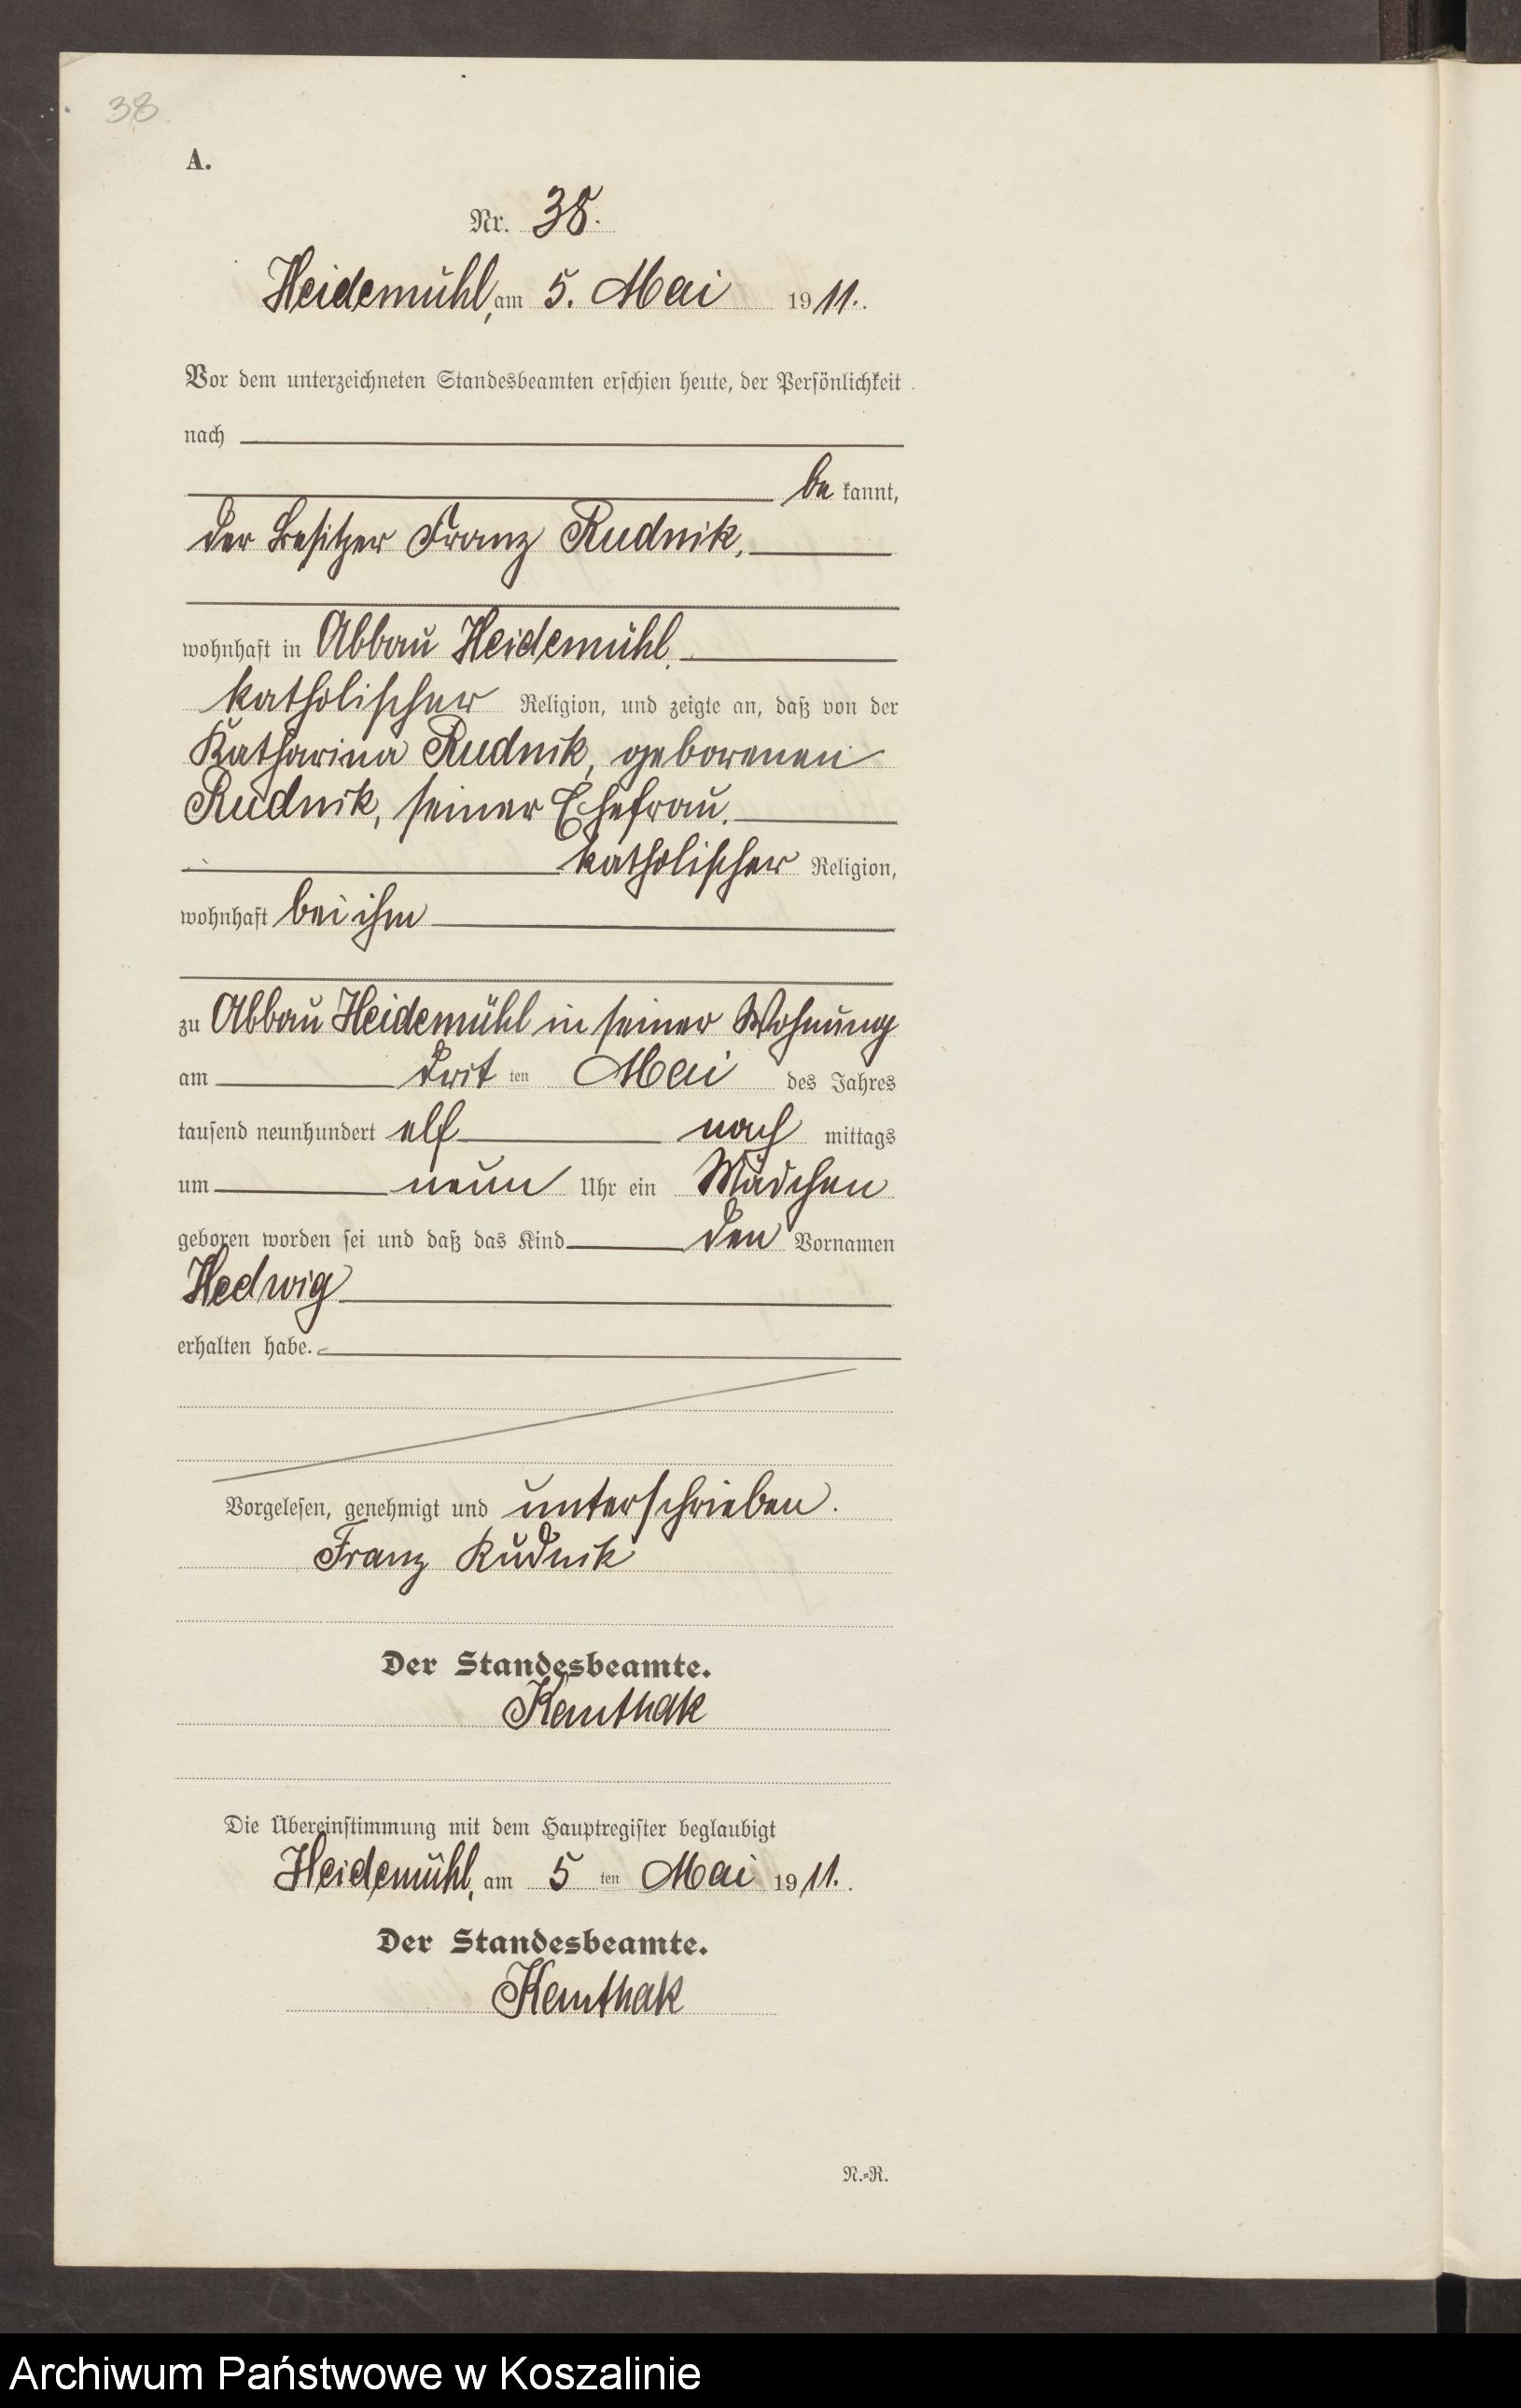 38
A.
Nr. 38.
Heidemühl, am 5. Mai 1911.
Vor dem unterzeichneten Standesbeamten erschien heute, der Persönlichkeit
nach
be kannt,
der Besitzer Franz Rudnik,
wohnhaft in Abbau Heidemühl,
katholischer Religion, und zeigte an, daß von der
Katharina Rudnik, geborenen
Rudnik, seiner Ehefrau,
katholischer Religion,
wohnhaft bei ihm
zu Abbau Heidemühl in seiner Wohnung
am drit ten Mai des Jahres
tausend neunhundert elf nach mittags
um neun Uhr ein Mädchen
geboren worden sei und daß das Kind den Vornamen
Hedwig
erhalten habe.
Vorgelesen, genehmigt und unterschrieben.
Franz Rudnik
Der Standesbeamte.
Die Übereinstimmung mit dem Hauptregister beglaubigt
Heidemühl, am 5 ten Mai 1911.
Der Standesbeamte.
N.-R.
Archiwum Państwowe w Koszalinie